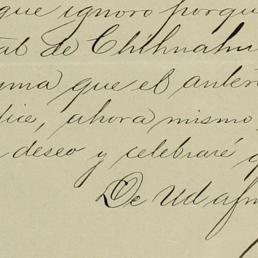 que ignoro porqu
tal de Chihuahu
uma que el anter
dice, ahora mismo
deseo y celebraré q
De Ud afm